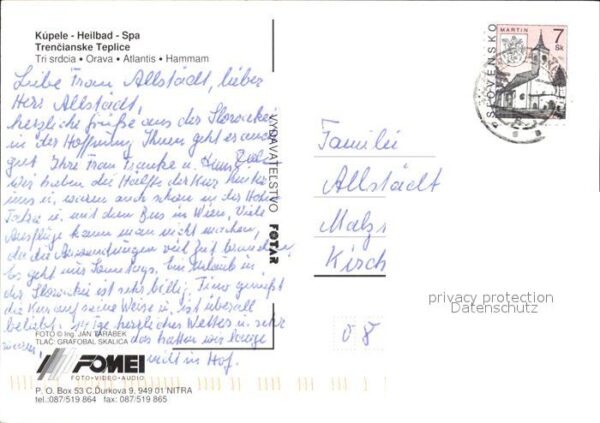 Kúpele - Heilbad - Spa
Trenčianske Teplice
Tri srdcia • Orava • Atlantis • Hammam
Liebe Frau Allstädt, lieber
Herr Allstädt,
herzliche Grüße aus der Slowakei
in der Hoffnung Ihnen geht es auch
gut Ihre Frau Francke u.
wir haben die Hälfte der Kur hinter
uns u. waren auch schon in der Hohen
Tatra u. mit dem Bus in Wien. Viele
Ausflüge kann man nicht machen,
da die Anwendungen viel Zeit brauchen
Es geht nur Samstags. Ein Urlaub in
der Slowakei ist sehr billig. Timo genießt
die Kur auf seine Weise u. ist überall
beliebt. herzliches Wetter u. sehr
warm, das hatten wir lange
nicht in Hof.
VYDAVATEĽSTVO FOTAR
FOTO © Ing. JÁN TARÁBEK
TLAČ: GRAFOBAL SKALICA
FOMEI
FOTO-VIDEO-AUDIO
P. O. Box 53 C.Ďurkova 9, 949 01 NITRA
tel.:087/519 864 fax: 087/519 865
SLOVENSKO
MARTIN
7
Sk
Familie
Allstädt
Malz
Kirch
08
privacy protection
Datenschutz